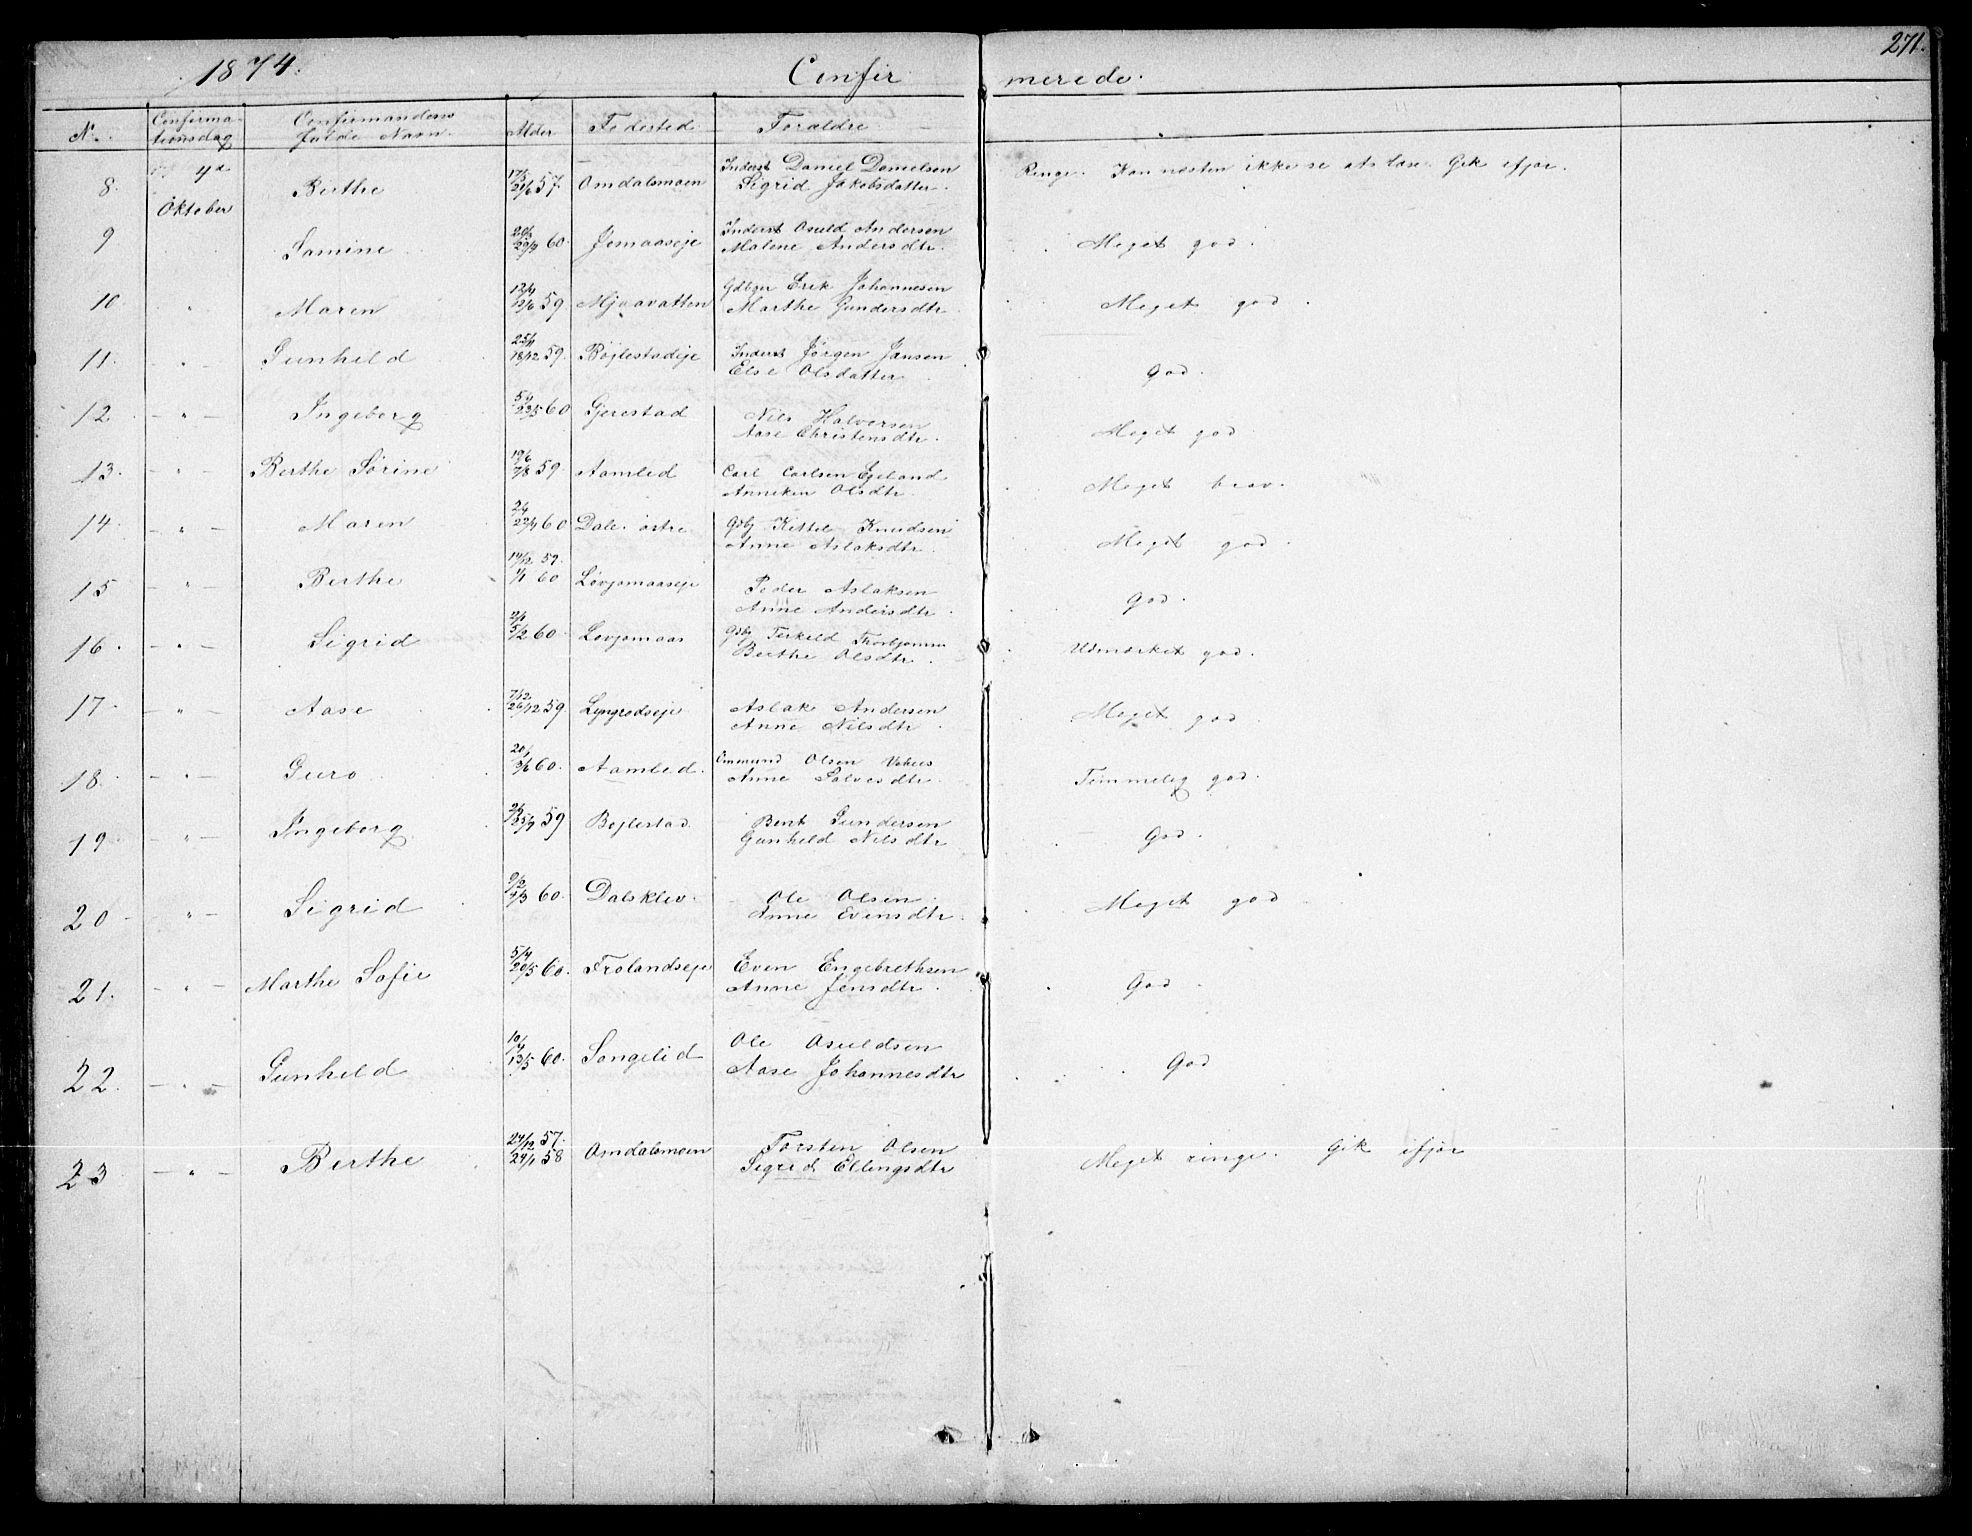 1874. Confirmerede. 271.
No. Confirmationsdag Confirmandens fulde Navn. Alder Fødested Forældre
8. 4de Oktober Berthe 17/5 21/6 57. Omdalsmoen Inderst Daniel Danielsen Ringe. Kan næsten ikke se at læse. Gik ifjor.
Sigrid Jakobsdatter.
9 Samine 20/3 29/4 60. Jomaaseje Inderst Osuld Andersen Meget god.
Malene Andersdtr.
10 " Maren 12/4 12/6 59 Mjaavatten Gdbgr Erik Johannesen Meget god.
Marthe Gundersdtr.
11. - " - Gunhild 25/11 18/12 59. Bøjlestadeje Inderst Jørgen Jansen God.
Else Olsdatter
12 - " - Ingeborg 5/4 29/5 60 Gjerestad Nils Halvorsen Meget god.
Aase Christensdtr.
13. - " - Berthe Sørine 19/6 7/8 59. Aamlid Carl Carlsen Egeland Meget brav.
Anneken Olsdtr.
14. - " - Maren 2/4 22/4 60 Dale østre Gdbj Kittil Knudsen Meget god.
Anne Aslaksdtr.
15 - " - Berthe 14/12 59. 1/1 60 Løvjomaaseje Peder Aslaksen God.
Anne Andersdtr.
16. - " - Sigrid 2/1 5/2 60. Løvjomaas Gdbj Terkeld Thorbjørnsen Udmærket god.
Berthe Olsdtr.
17. - " - Aase 7/12 26/12 59 Lyngrødseje Aslak Andersen Meget god.
Anne Nilsdtr.
18. - " - Guro 20/1 3/6 60. Aamlid. Ommund Olsen Meget Temmelig god.
Anne Salvesdtr.
19. - " - Ingeborg 59 Bøjlestad Bent Gundersen God.
Gunhild Nilsdtr
20 - " - Sigrid 9/2 4/3 60. Dalsklev. Ole Olsen Meget god
Anne Evensdtr.
21. - " - Marthe Sofie 5/4 20/5 60. Frolandseje Even Engebrethsen God.
Anne Jensdtr.
22. - " - Gunhild 10/4 13/5 60. Songelid Ole Osuldsen God
Aase Johannesdtr
23 - " - Berthe 24/12 57. 24/1 58 Omdalsmoen Torsten Olsen Meget ringe. Gik ifjor
Sigrid Ellingsdtr